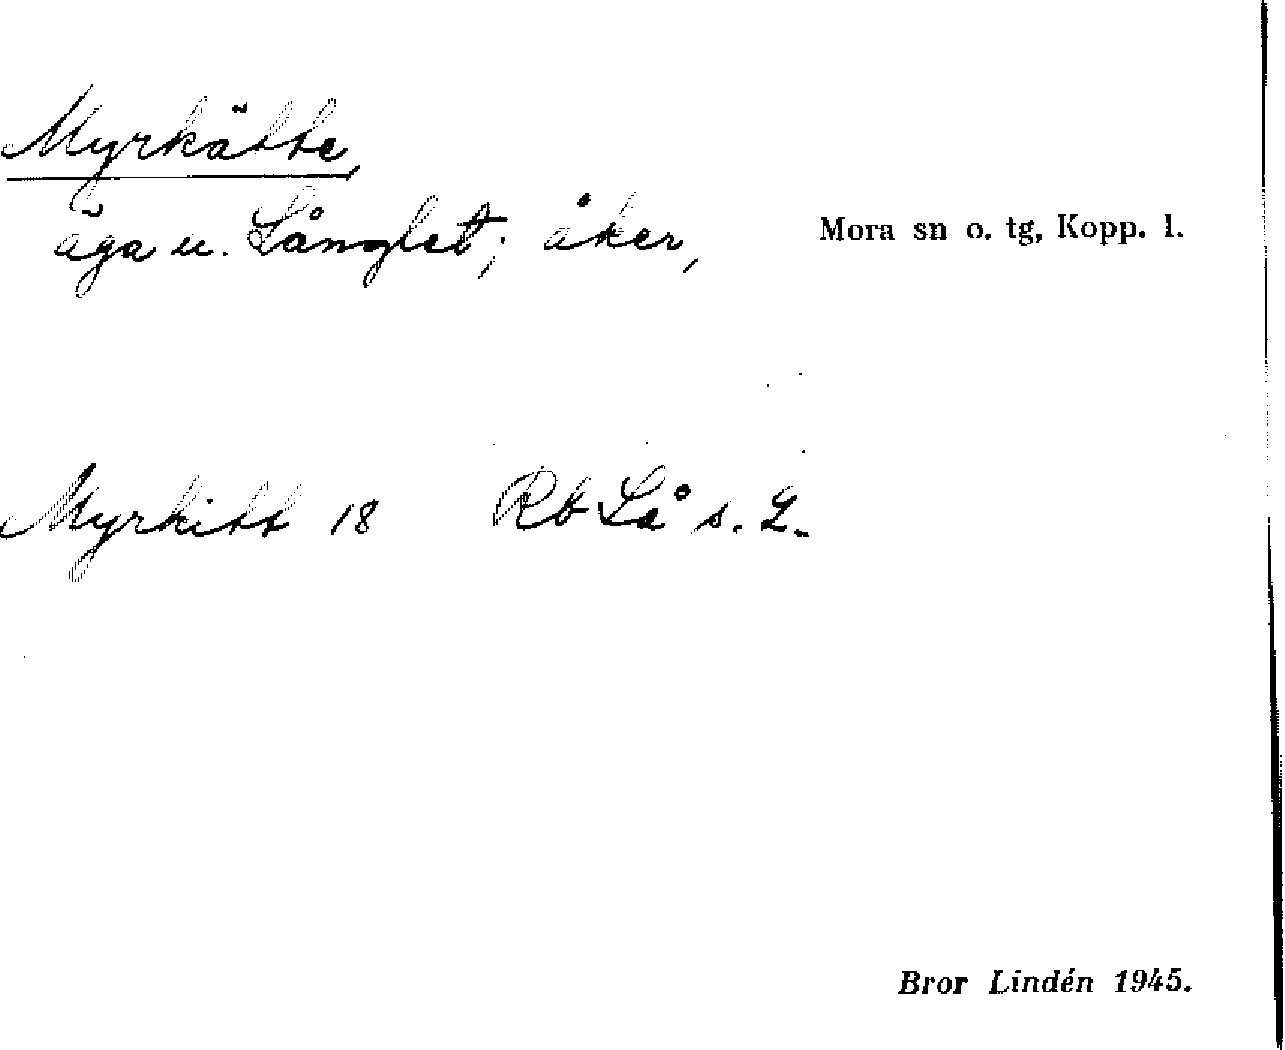 Myrkätte,
äga u. Långlet; åker,
Mora sn o. tg, Kopp. l.
Myrkitt 18 Rb Lå s. 2.
Bror Lindén 1945.